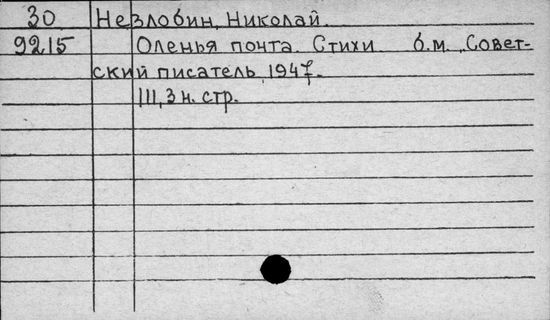 30 Незлобин, Николай.
9215 Оленья почта. Стихи б.м. „Совет-
ский писатель, 1947.
111, 3 н. стр.